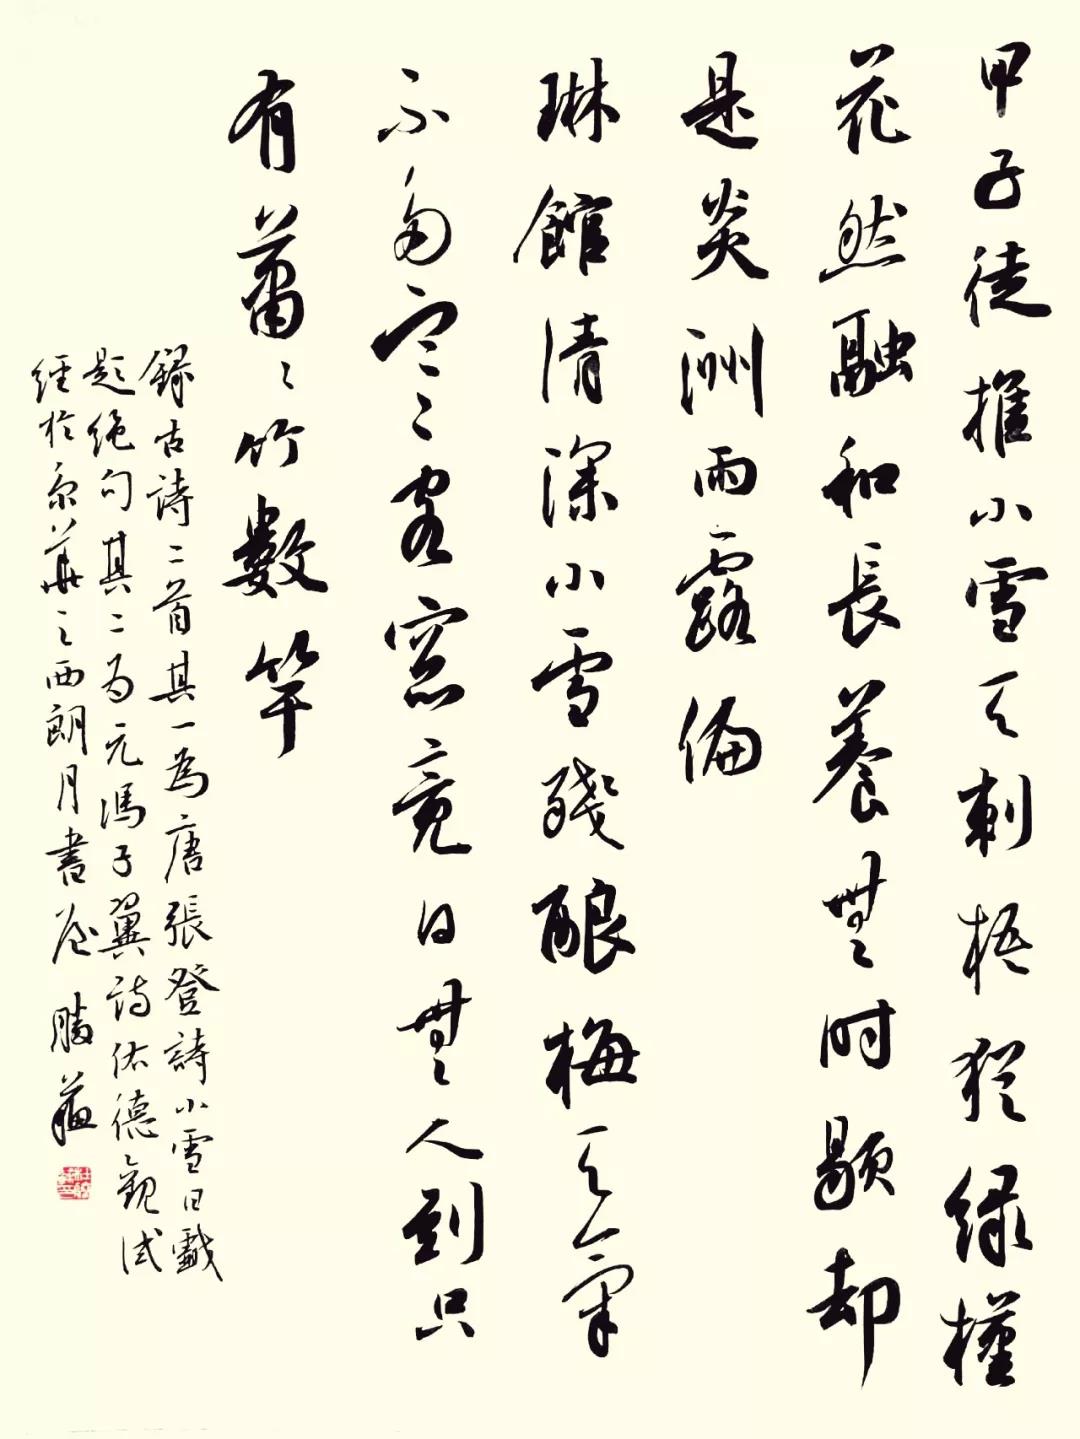 甲子徒推小雪天刺梧猶綠槿
花然融和長養無時歇却
是炎洲雨露偏
琳館清深小雪殘酿梅天氣
不多寒客窓竟日無人到只
有蕭〻竹數竿
錄古詩二首其一為唐張登詩小雪日戲
題絕句其二為元馮子翼詩佑德觀試
經於京華之西朗月書屋